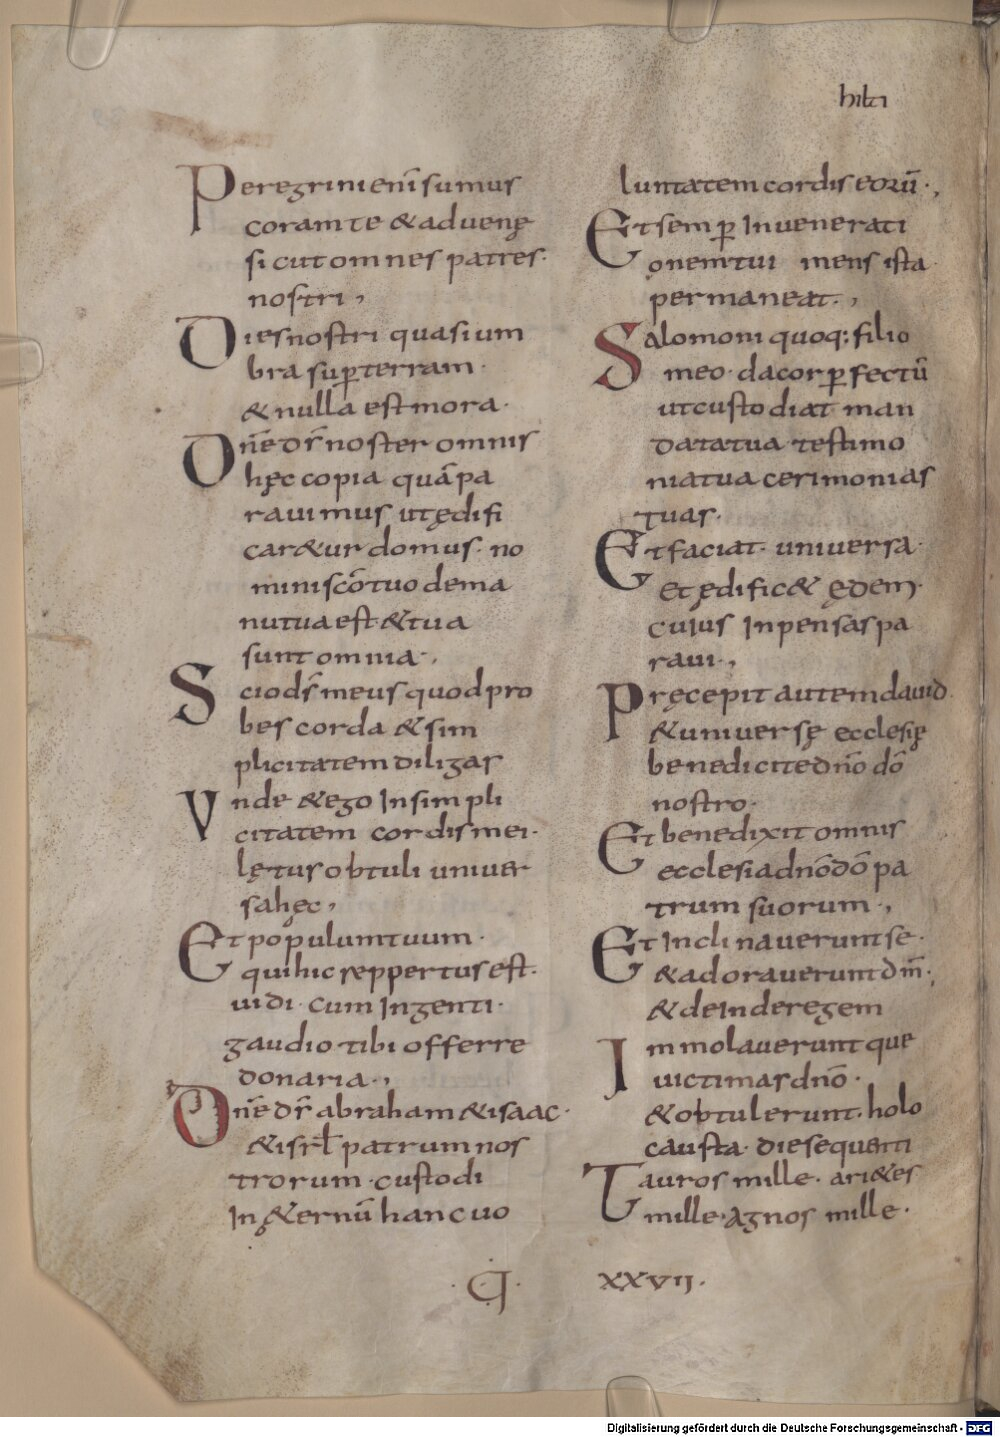 hiłi
Peregrini enī sumus
coram te & aduenę
sicut omnes patres·
nostri,
Dies nostri quasi um
bra suꝑ terram·
& nulla est mora·
Dn̄e ds̄ noster omnis
hęc copia quā pa
rauimus ut ędifi
car&ur domus· no
mini sc̄o tuo de ma
nu tua est & tua
sunt omnia·,
Scio ds̄ meus quod pro
bes corda & sim
plicitatem diligas
Vnde & ego In simpli
citatem cordis mei·
lętus obtuli uniuer
sa hęc,
Et populum tuum·
qui hic reppertus est·
uidi· cum Ingenti·
gaudio tibi offerre
donaria·,
Dn̄e ds̄ abraham & isaac·
& isrł patrum nos
trorum· custodi
In &ernū hanc uo
luntatem cordis eorū·,
Et semꝑ In uenerati
onem tui mens ista·
permaneat·,
Salomoni quoq: filio
meo· da cor ꝑfectū
ut custodiat man
data tua testimo
nia tua cerimonias
tuas·
Et faciat· uniuersa·
et ędific& ędem·
cuius Inpensas pa
raui·,
Pręcepit autem dauid
& uniuersę ecclesię
benedicite dn̄o dō
nostro·
Et benedixit omnis
ecclesia dn̄o dō pa
trum suorum·,
Et Inclinauerunt se·
& adorauerunt dm̄·,
& deInde regem
Immolauerunt que
uictimas dn̄o·
& obtulerunt· holo
causta· die sequenti
Tauros mille· ari&es
mille· Agnos mille·
· q ·
xxvii·
Digitalisierung gefördert durch die Deutsche Forschungsgemeinschaft - DFG